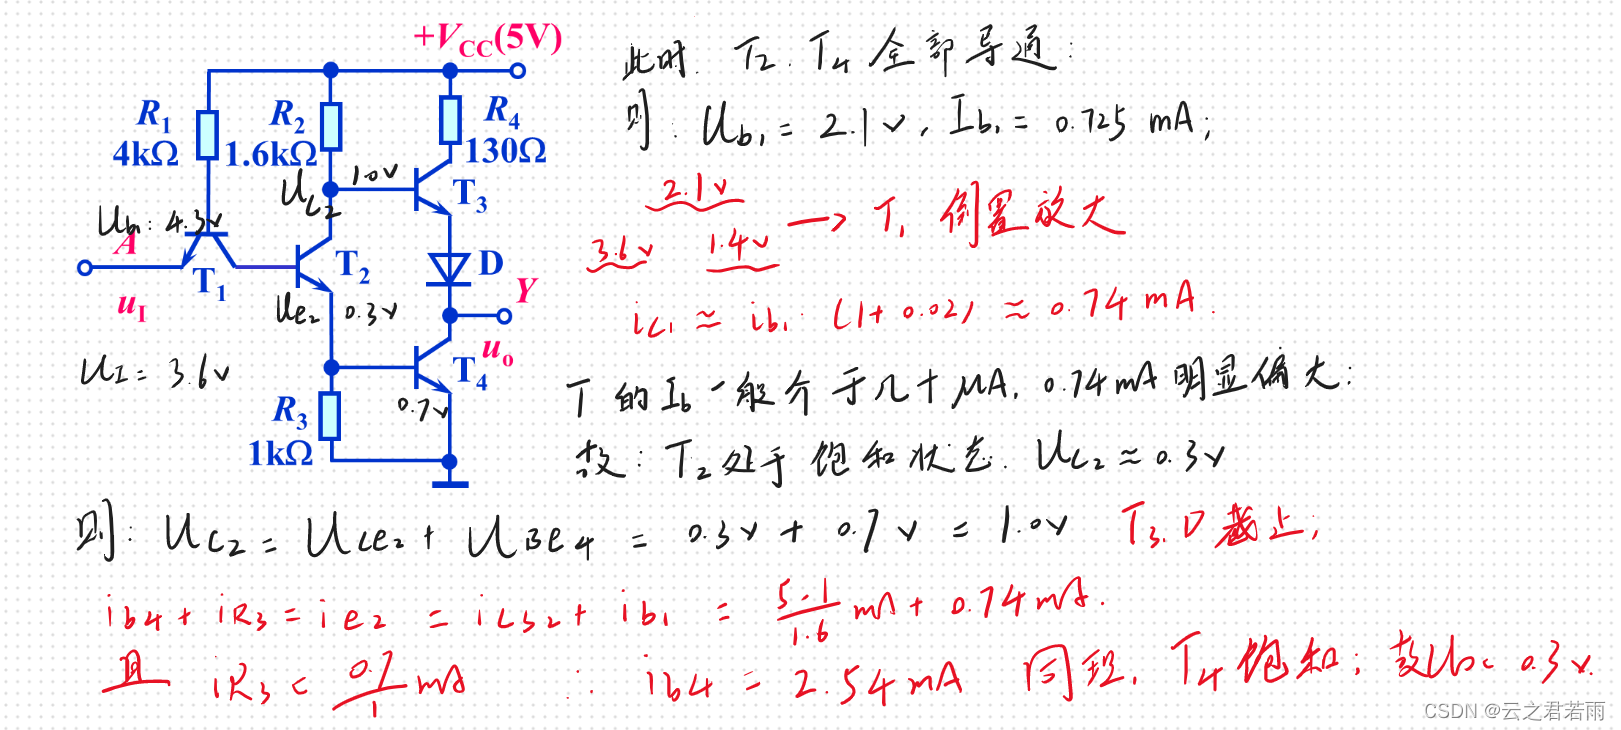 +VCC(5V)
R1
4kΩ
R2
1.6kΩ
R4
130Ω
Uc2
1.0v
T3
Ub1: 4.3v
A
T1
T2
D
Y
uI
Ue2 0.3v
uo
UI = 3.6v
T4
0.7v
R3
1kΩ
此时: T2. T4 全部导通:
则: Ub1 = 2.1v, Ib1 = 0.725 mA;
2.1v
3.6v 1.4v → T1 倒置放大
ic1 ≈ ib1· (1+0.02) ≈ 0.74 mA.
T 的 Ib 一般介于几十μA, 0.74mA 明显偏大:
故: T2 处于饱和状态. Uc2 ≈ 0.3v
则: Uc2 = Uce2 + UBe4 = 0.3v + 0.7v = 1.0v T3. D 截止,
ib4 + iR3 = ie2 = ics2 + ib1 = 5-1/1.6 mA + 0.74mA.
且 iR3 < 0.7/1 mA ∴ ib4 = 2.54mA 同理, T4 饱和; 故Uo< 0.3v.
CSDN @云之君若雨